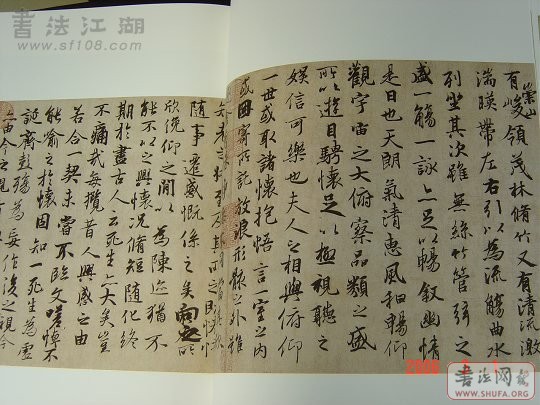 書法江湖
www.sf108.com
崇山
有峻領茂林脩竹又有清流激
湍暎帶左右引以為流觴曲水
列坐其次雖無絲竹管弦之
盛一觴一詠亦足以暢叙幽情
是日也天朗氣清惠風和暢仰
觀宇宙之大俯察品類之盛
所以遊目騁懷足以極視聽之
娛信可樂也夫人之相與俯仰
一世或取諸懷抱悟言一室之內
或因寄所託放浪形骸之外雖
老之將至及其所之既惓
隨事遷感慨係之矣向之所
欣俛仰之間以為陳迹猶不
能不以之興懷況脩短隨化終
期於盡古人云死生亦大矣豈
不痛哉每攬昔人興感之由
若合一契未嘗不臨文嗟悼不
能喻之於懷固知一死生為虛
誕齊彭殤為妄作後之視今
由今之視
書法网
www.SHUFA.ORG